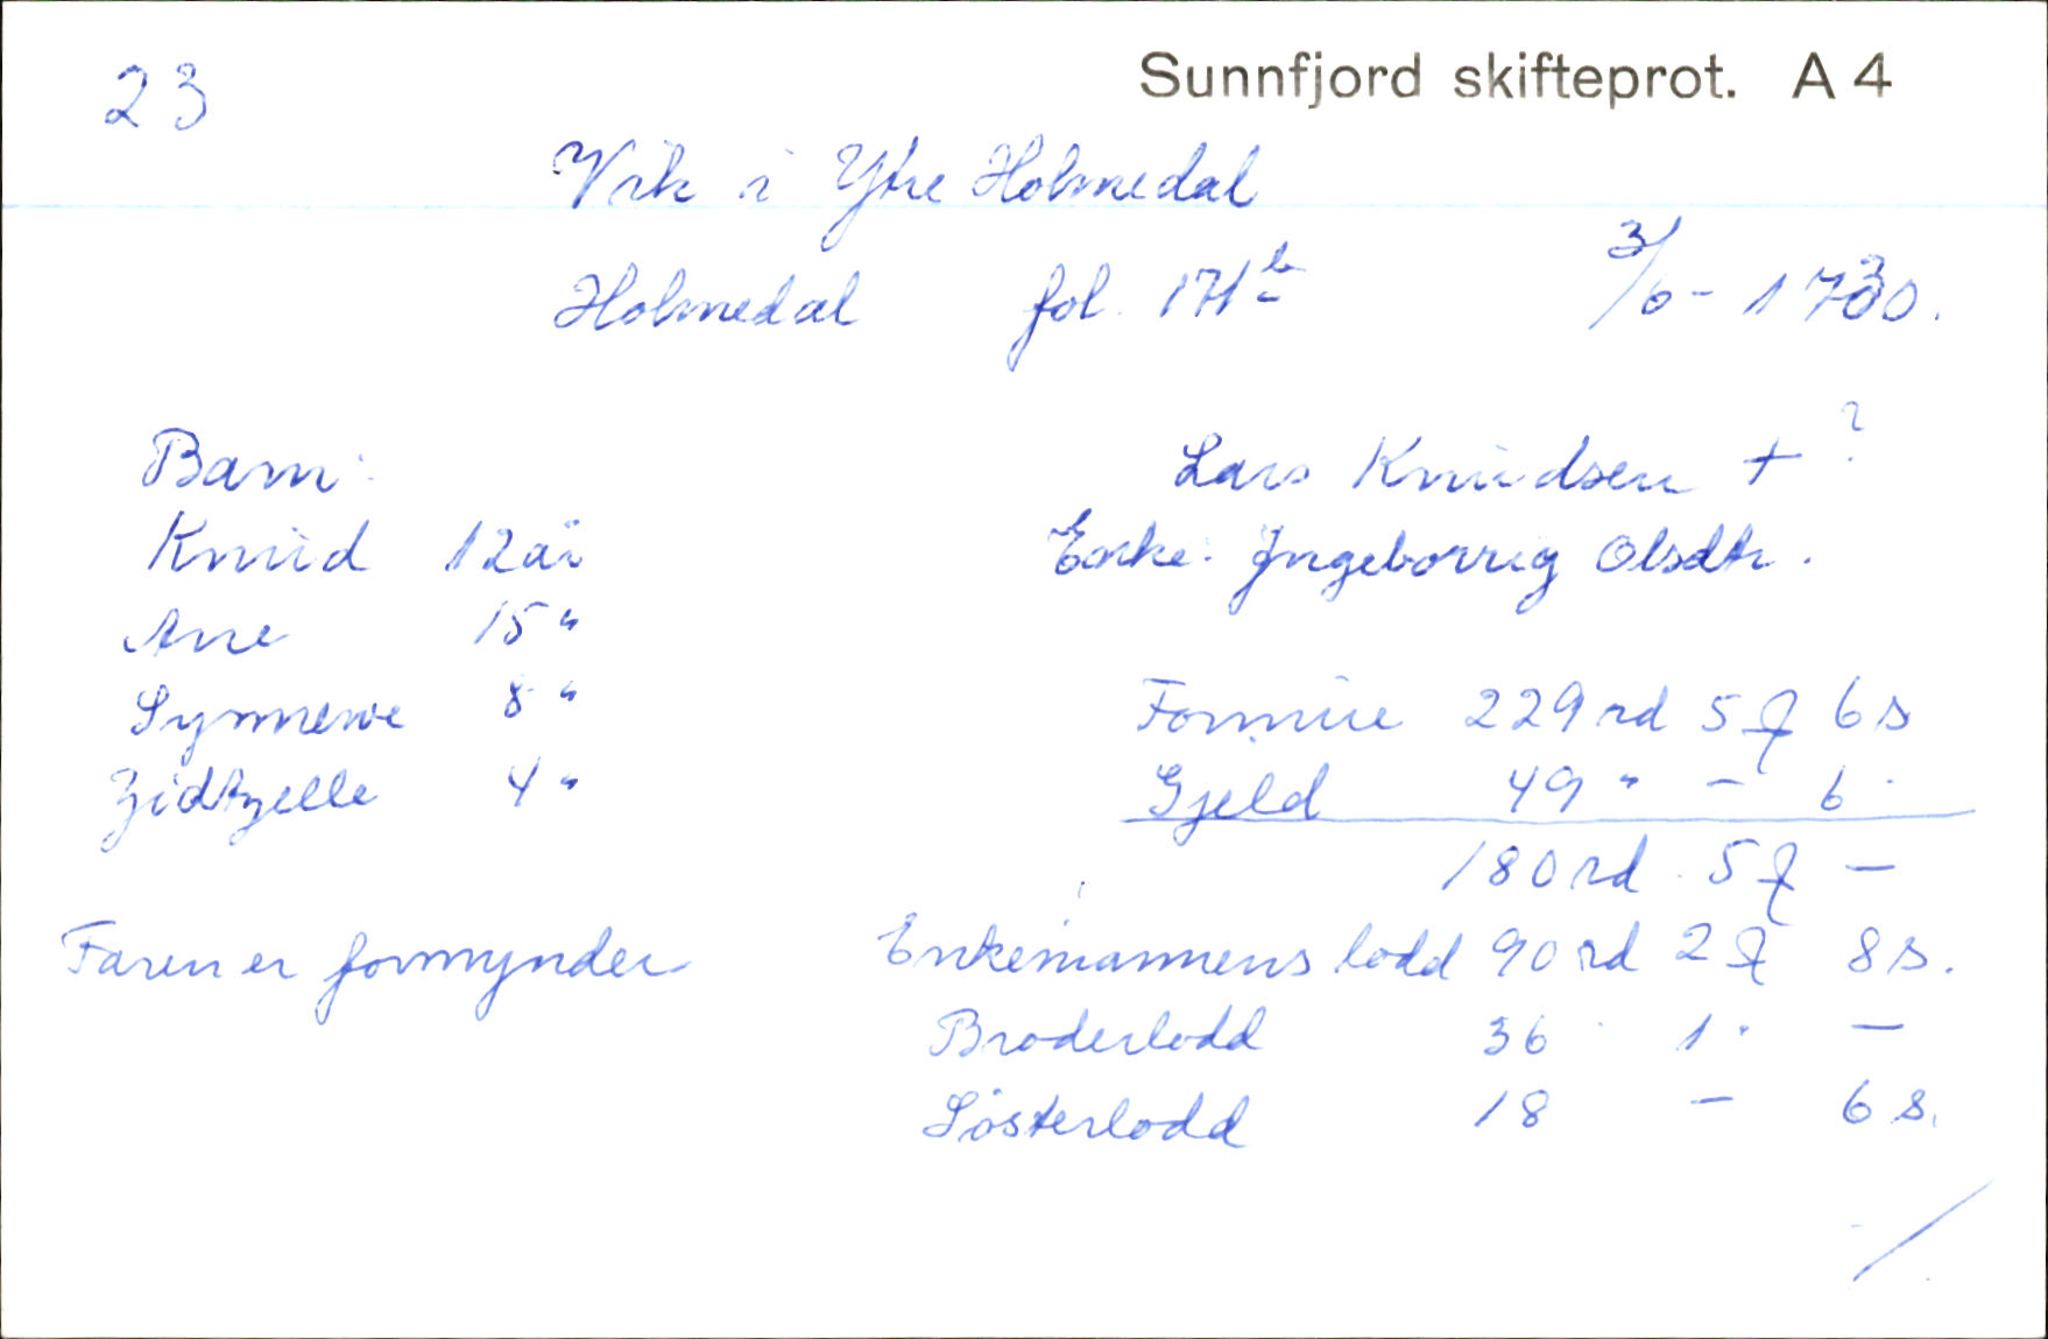 23
Sunnfjord skifteprot. A 4
Vik i Ytre Holmedal
Holmedal fol. 171b 3/6 - 1730.
Barn: Lars Knudsen + ?
Knud 12 år Enke: Ingeborrig Olsdtr.
Anne 15 "
Synnewe 8 " Formue 229 rd 5 ƒ 6 s
Zidtzelle 4 " Gjeld 49 " - 6 "
180 rd 5 ƒ -
Faren er formynder Enkemannens lodd 90 rd 2 ƒ 8 s.
Broderlodd 36 " 1 " -
Søsterlodd 18 - 6 s.